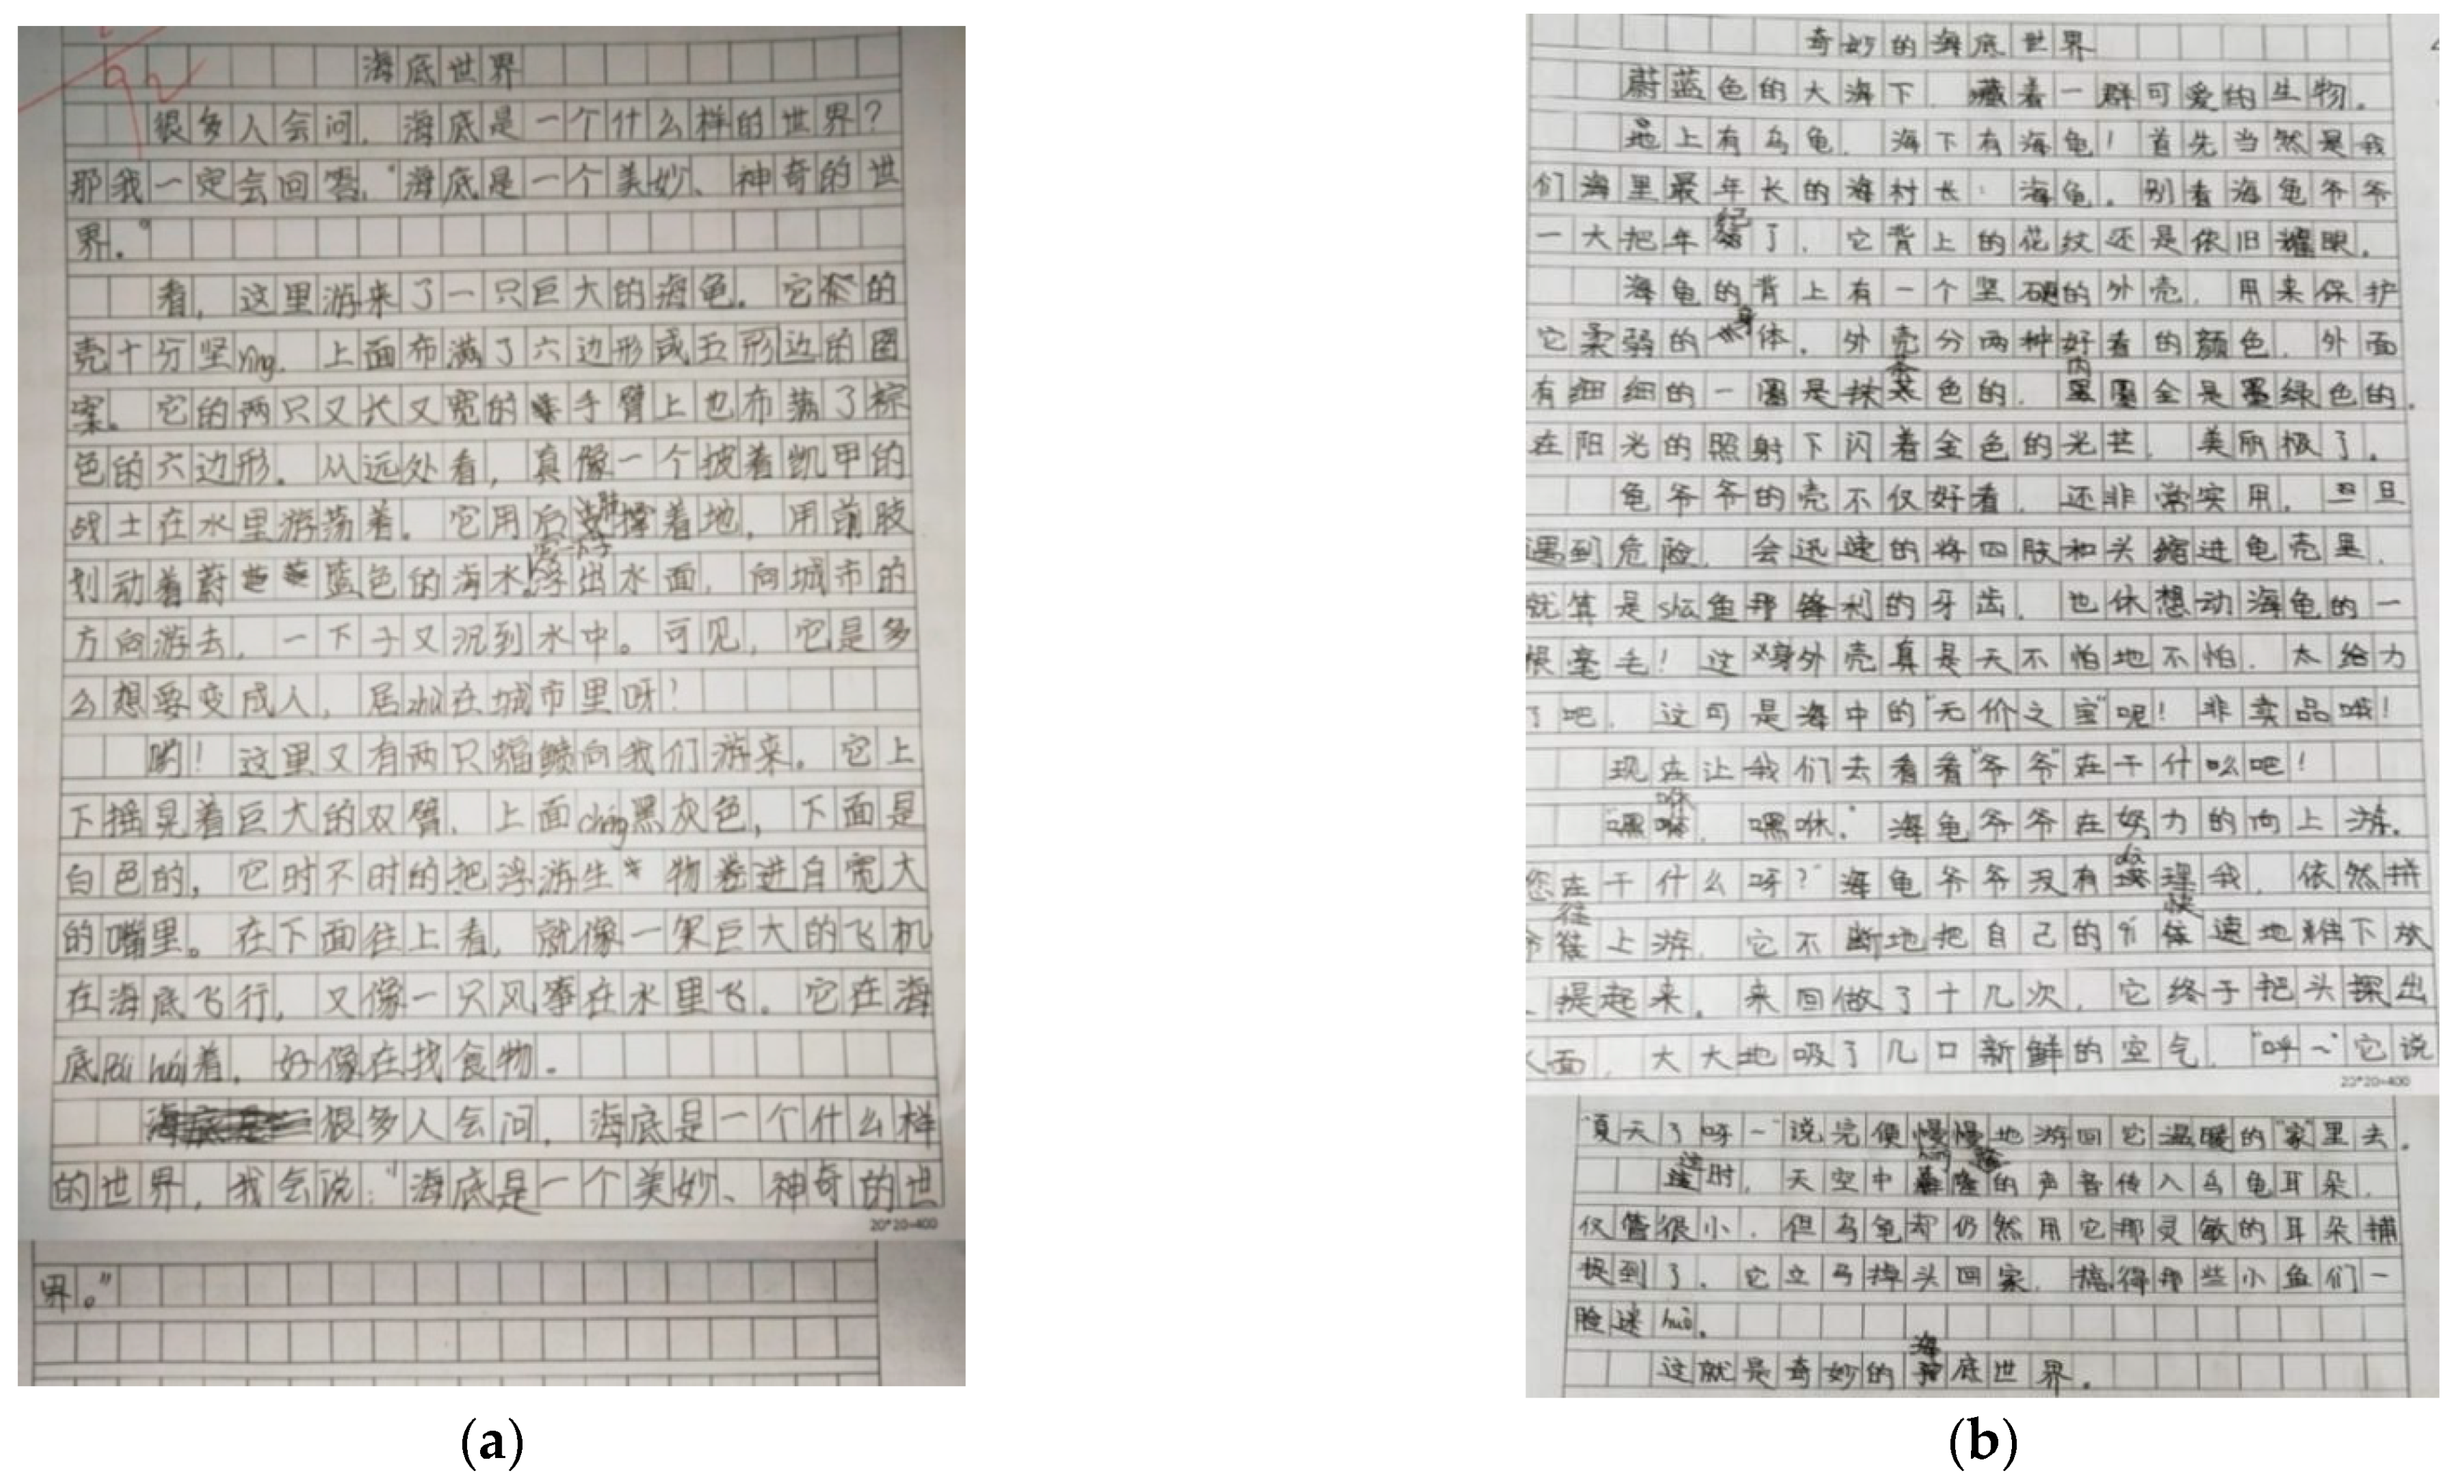 92
海底世界
很多人会问，海底是一个什么样的世界？
那我一定会回答，“海底是一个美妙、神奇的世
界。”
看，这里游来了一只巨大的海龟。它的
壳十分坚yìng，上面布满了六边形或五形边的图
案。它的两只又长又宽的手臂上也布满了棕
色的六边形。从远处看，真像一个披着凯甲的
战士在水里游荡着。它用后肢撑着地，用前肢
划动着蔚蓝色的海水，浮出水面，向城市的
方向游去，一下子又沉到水中。可见，它是多
么想要变成人，居zhù在城市里呀！
哟！这里又有两只蝠鲼向我们游来。它上
下摇晃着巨大的双臂，上面chéng黑灰色，下面是
白色的，它时不时的把浮游生物卷进自宽大
的嘴里。在下面往上看，就像一架巨大的飞机
在海底飞行，又像一只风筝在水里飞。它在海
底Pái huái着，好像在找食物。
很多人会问，海底是一个什么样
的世界，我会说：“海底是一个美妙、神奇的世
20*20=400
界。”
(a)
奇妙的海底世界
蔚蓝色的大海下，藏着一群可爱的生物。
地上有乌龟，海下有海龟！首先当然是我
们海里最年长的海村长：海龟。别看海龟爷爷
一大把年纪了，它背上的花纹还是依旧耀眼。
海龟的背上有一个坚硬的外壳，用来保护
它柔弱的身体。外壳分两种好看的颜色，外面
有细细的一圈是抹茶色的，内圈全是墨绿色的。
在阳光的照射下闪着金色的光芒，美丽极了。
龟爷爷的壳不仅好看，还非常实用，一旦
遇到危险，会迅速的将四肢和头缩进龟壳里，
就算是shā鱼那锋利的牙齿，也休想动海龟的一
根毫毛！这身外壳真是天不怕地不怕，太给力
了吧，这可是海中的“无价之宝”呢！非卖品哦！
现在让我们去看看“爷爷”在干什么吧！
“嘿咻，嘿咻。”海龟爷爷在努力的向上游。
您在干什么呀？”海龟爷爷没有dā理我，依然拼
往上游，它不断地把自己的快速地往下放
提起来。来回做了十几次，它终于把头探出
面，大大地吸了几口新鲜的空气，“呼～”它说
20*20=400
“夏天了呀～”说完便慢慢地游回它温暖的“家”里去。
这时，天空中隆的声音传入乌龟耳朵，
仅管很小，但乌龟却仍然用它那灵敏的耳朵捕
捉到了，它立马掉头回家，搞得那些小鱼们一
脸迷huò。
这就是奇妙的海底世界。
(b)